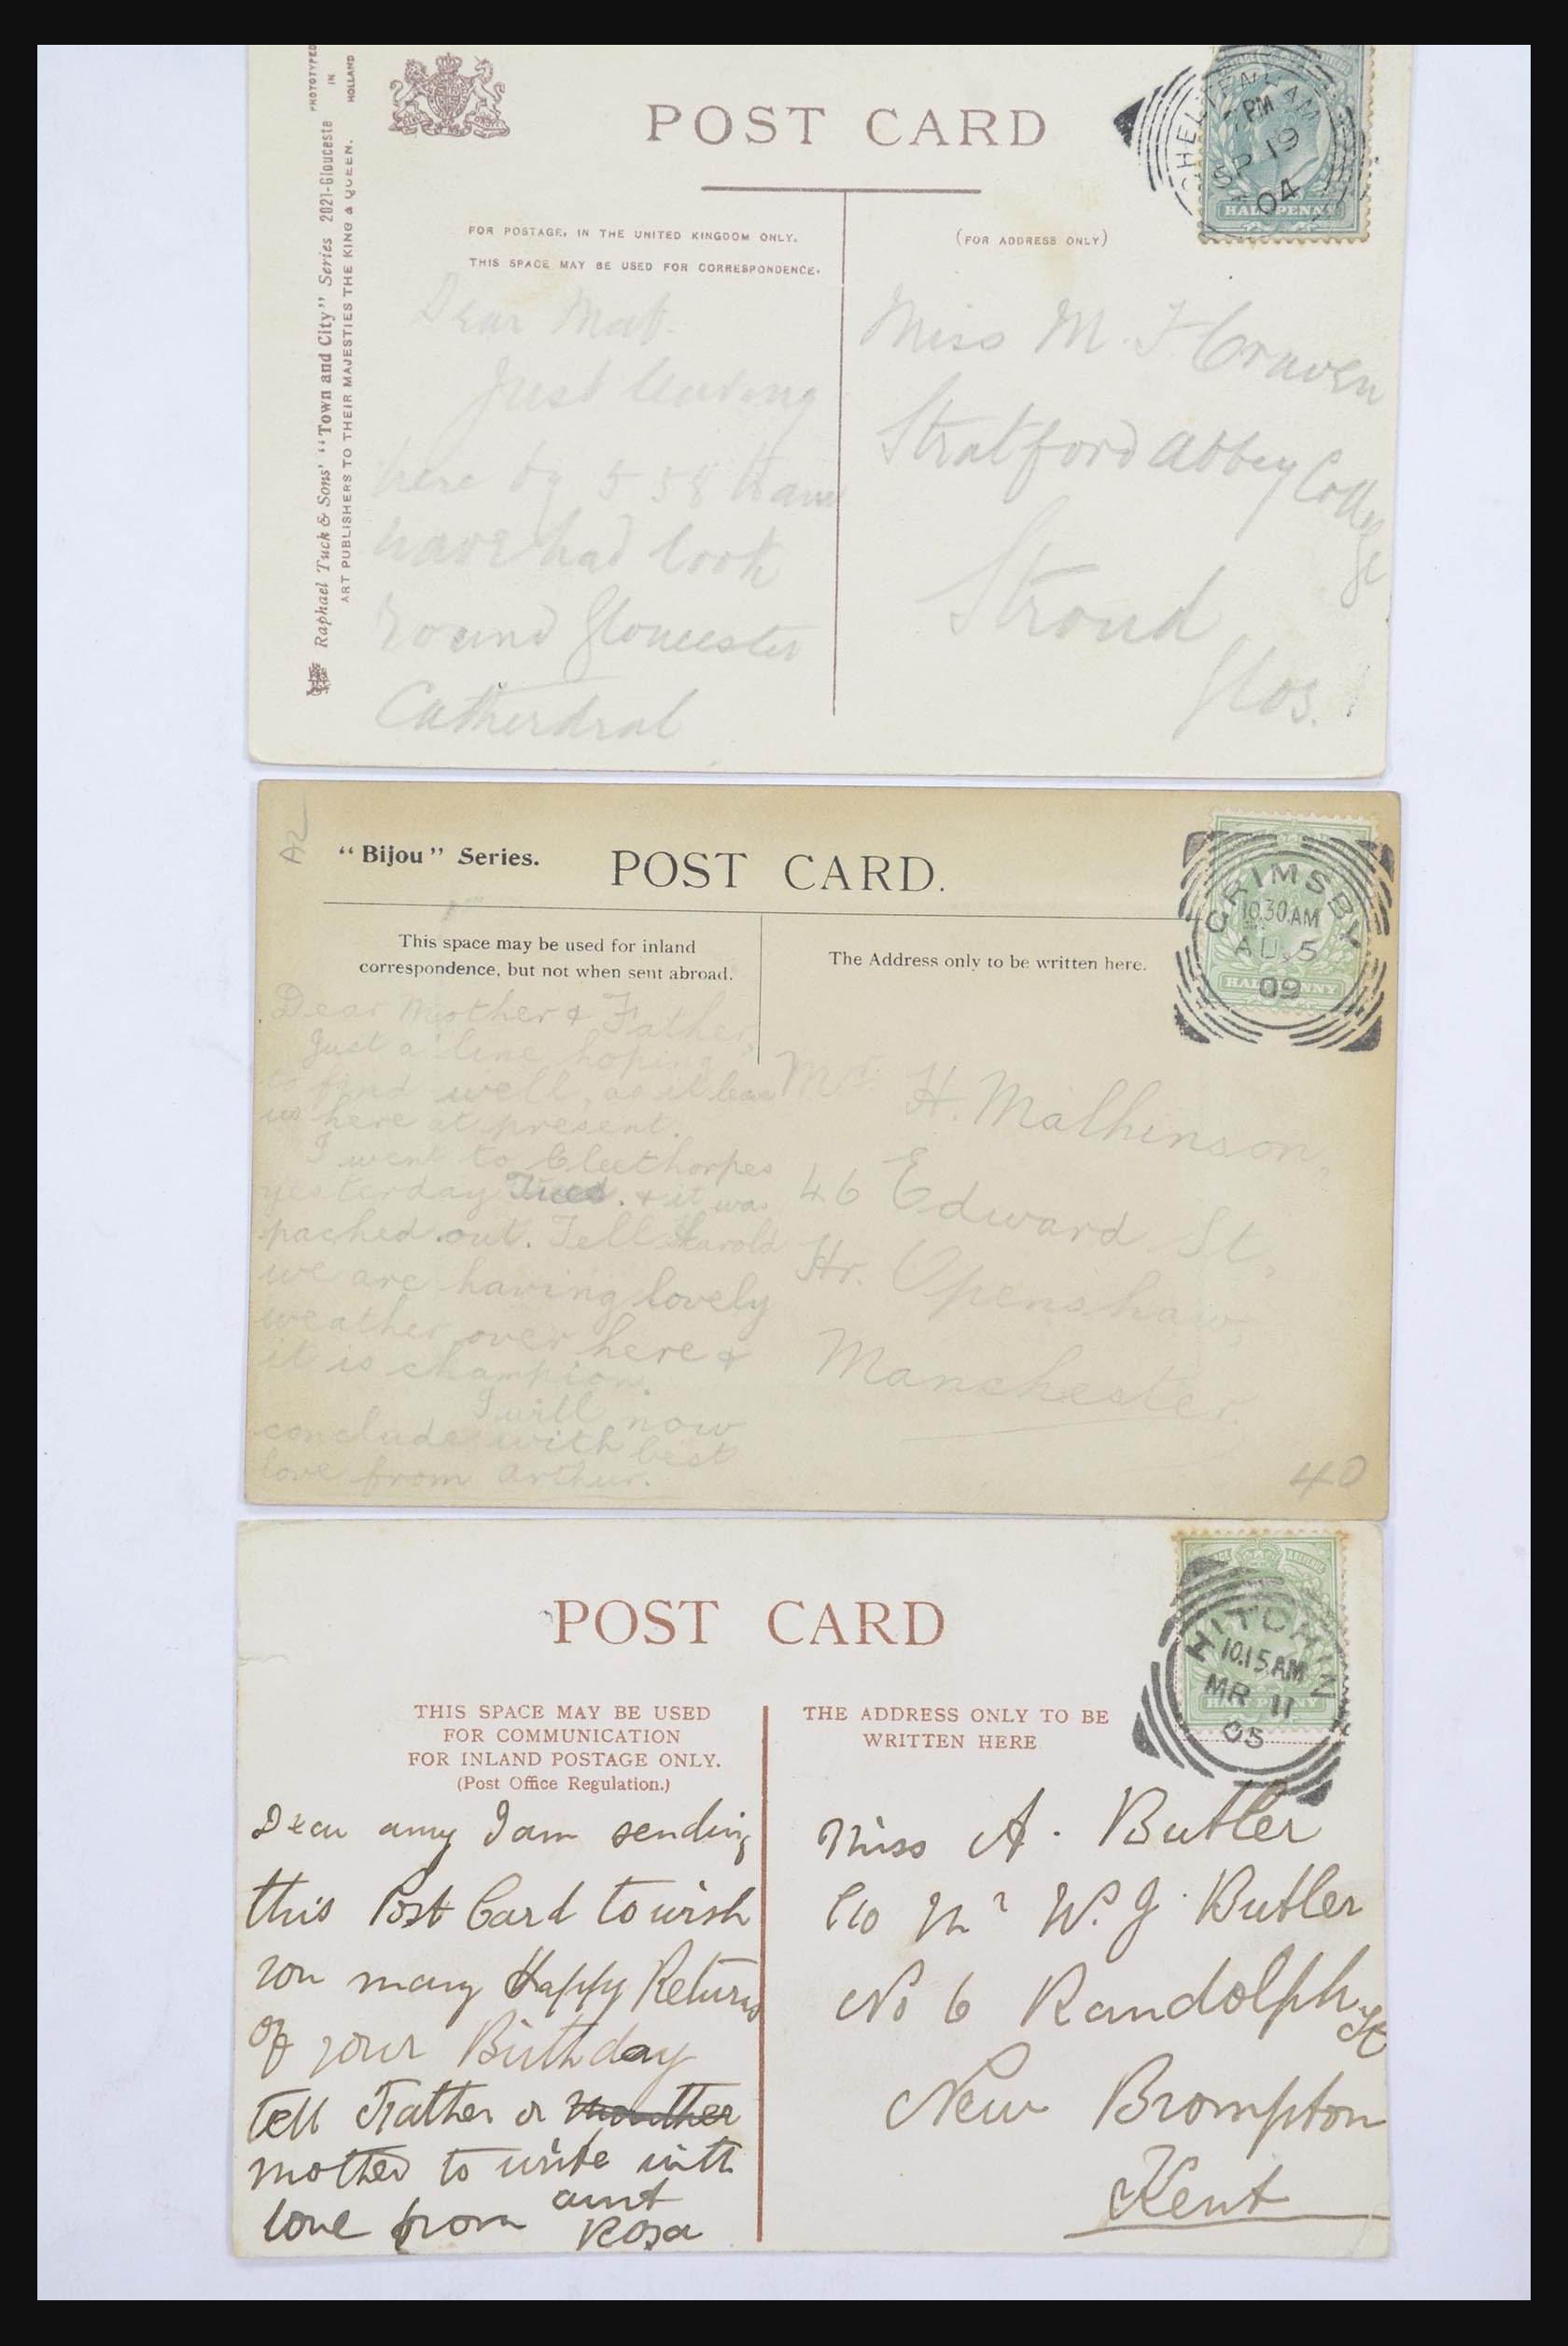 PHOTOTYPED
IN
HOLLAND
Raphael Tuck & Sons' "Town and City" Series 2021-Glouceste
ART PUBLISHERS TO THEIR MAJESTIES THE KING & QUEEN.
POST CARD
CHELTENHAM
PM
SP 19
04
HALFPENNY
FOR POSTAGE, IN THE UNITED KINGDOM ONLY,
THIS SPACE MAY BE USED FOR CORRESPONDENCE.
(FOR ADDRESS ONLY)
Dear Mab
Just leaving
here by 5 58
have had look
round Gloucester
Catherdral
Miss M. F Craven
Stratford Abbey College
Stroud
Glos.
A2
"Bijou" Series.
POST CARD.
GRIMSBY
10.30.AM
AU. 5
09
HALFPENNY
This space may be used for inland
correspondence, but not when sent abroad.
The Address only to be written here.
Dear Mother & Father,
Just a line hoping
to find well, as it leaves
us here at present.
I went to Cleethorpes
yesterday Tues. & it was
packed out. Tell Harold
we are having lovely
weather over here &
it is champion.
I will now
conclude with best
love from Arthur.
H. Mathinson,
46 Edward St,
Hr. Openshaw,
Manchester.
40
POST CARD
HITCHIN
10.15 AM
MR 11
05
HALFPENNY
THIS SPACE MAY BE USED
FOR COMMUNICATION
FOR INLAND POSTAGE ONLY.
(Post Office Regulation.)
THE ADDRESS ONLY TO BE
WRITTEN HERE
Dear amy I am sending
this Post Card to wish
you many Happy Returns
of your Birthday
tell Father or
mother to write with
love from aunt
Rosa
Miss A. Butler
C/o Mr W. J. Butler
No 6 Randolph St
New Brompton
Kent